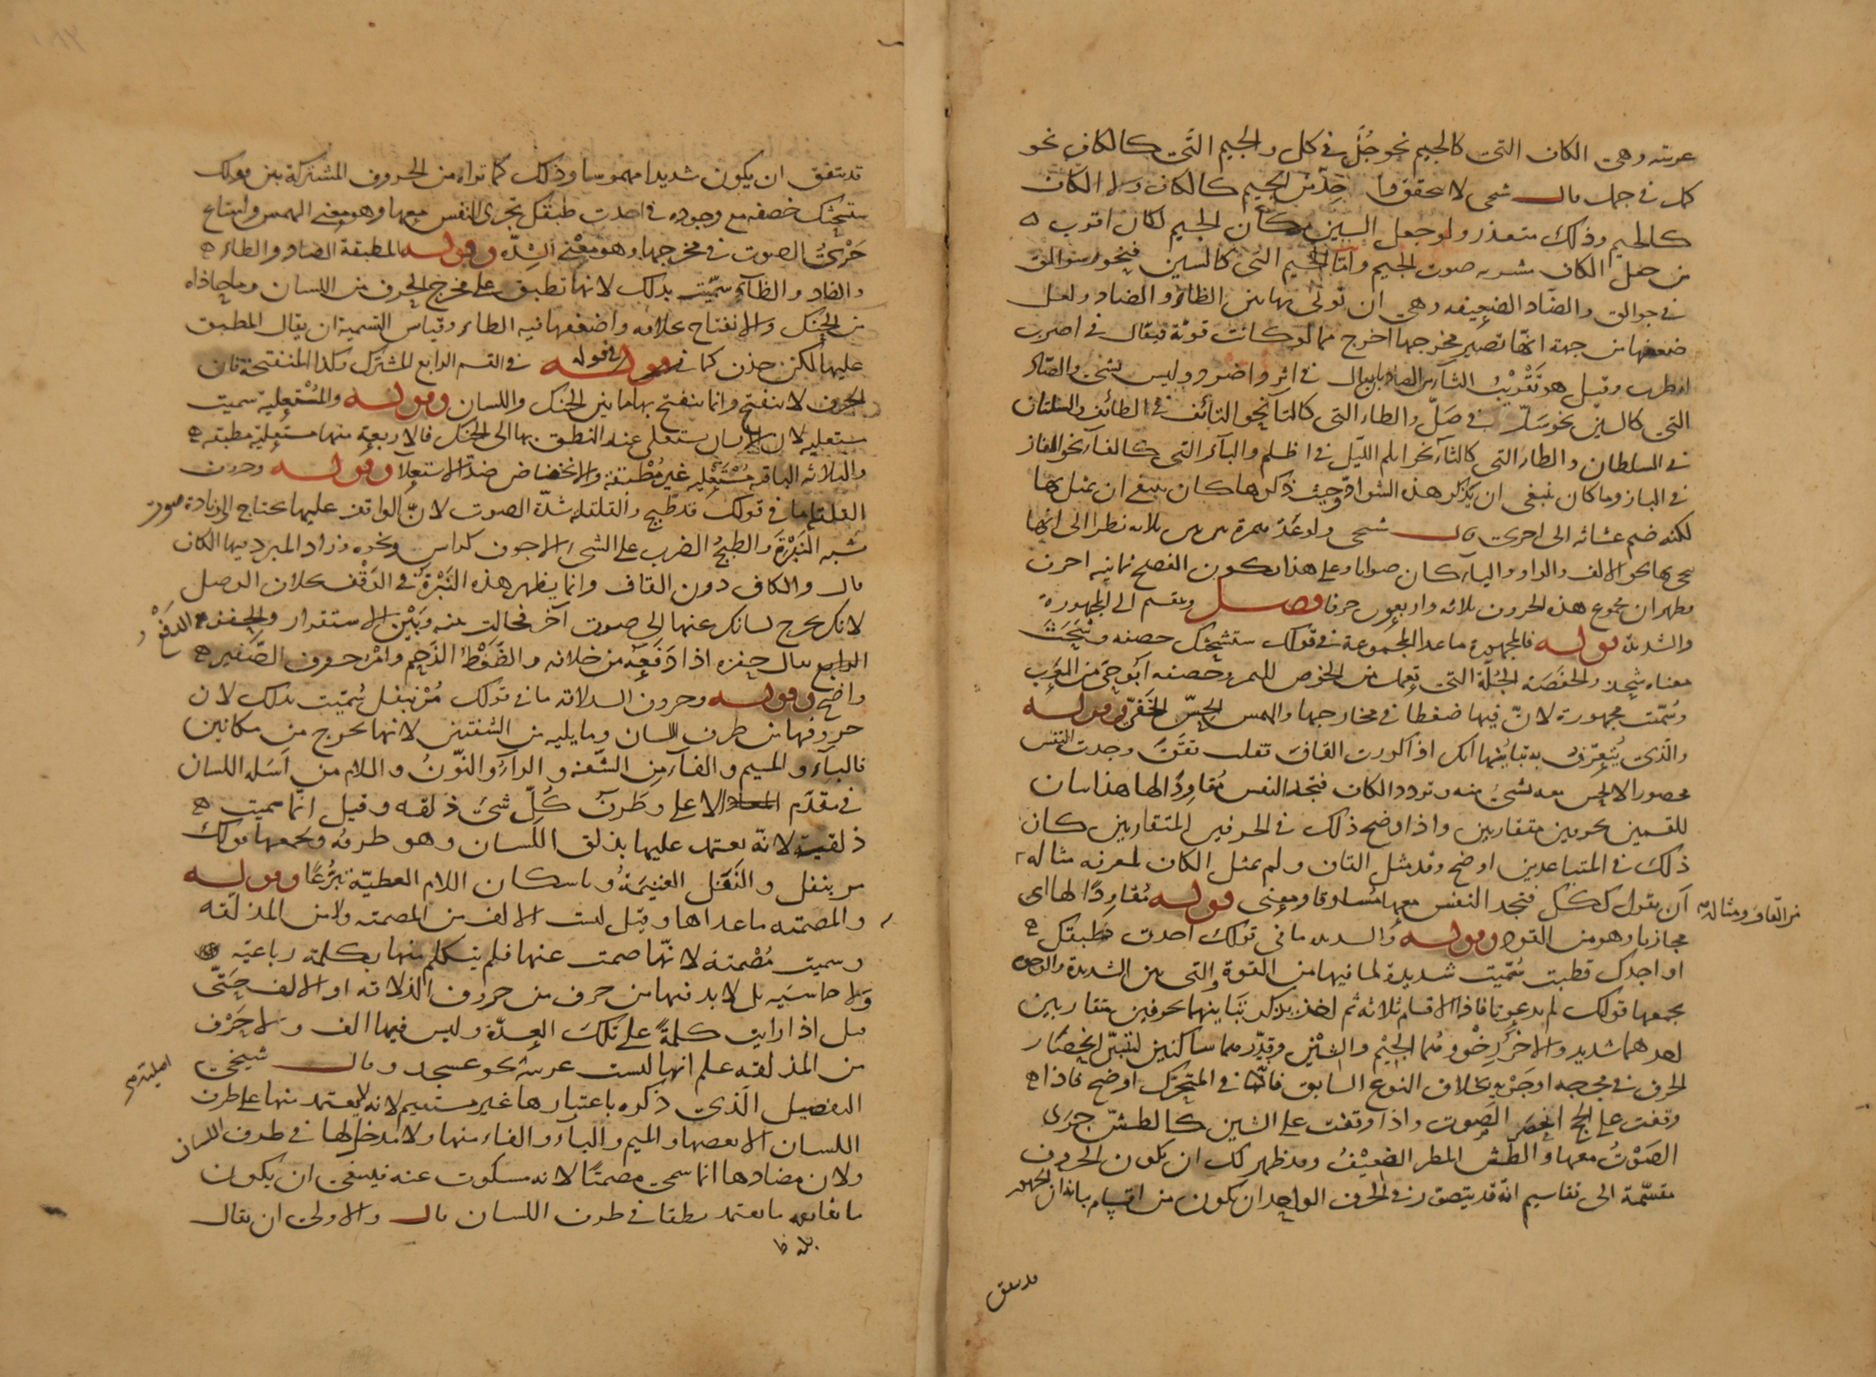 عربيته وهي الكاف التي كالجيم نحو جُلّ في كل والجيم التي كالكاف نحو
كل في جمل قال شمى لا يتحقق جيم كالكاف ولا الكاف
كالجيم وذلك متعذر ولو جعل السين مكان الجيم لكان اقرب
من جعل الكاف صوت الجيم واما الجيم التي كالسين فنحو سوالق
في جوالق والضاد الضعيفة وهي ان تولى بها بين الظاء والضاد ولعل
ضعفها من جهة انها تصير مخرجها اخرج مما لو كانت قوية فيقال في اضرب
اظرب وقيل هو تقريب الثاء من الضاد يقال في اثر اضر وليس بشئ والصاد
التي كالسين نحو سلّ في صلّ والطاء التي كالتا نحو التائف في الطائف والسلتان
في السلطان والظاء التي كالثاء نحو اثلم الليل في اظلم والباء التي كالفاء نحو الفاز
في الباز وما كان ينبغي ان يذكر هذه الشواذ وحيث ذكرها كان ينبغي ان يمثل بها
لكنه ضم غثائه الى اخرى قال شمى ولو عدّ همزة بين بين ثلاثة نظرا الى انها
نحو الالف والواو والياء كان صوابا وعلى هذا تكون الفصح ثمانية احرف
فظهر ان مجموع هذه الحروف ثلاثة واربعون حرفا فصل وتنقسم الى المجهورة
والشديدة قوله فالمجهورة ما عدا المجموعة في قولك ستشحثك خصفه وتشحث
معناه شحذ والخصفة الجلّة التي تعمل من الخوص للتمر وخصفه ابو حي من العرب
وسميت مجهورة لان فيها ضغطا في مخارجها والهمس الحس الخفي وقوله
والذي يتعرف به تباينهما انك اذا كررت القاف فقلت ققق وجدت النفس
محصورا لا تحس معه بشئ منه وتردد الكاف فتجد النفس مقاودا لها هذا بيان
للقسمين بحرفين متقاربين واذا وضح ذلك في الحرفين المتقاربين كان
ذلك في المتباعدين اوضح وقد مثل القاف ولم يمثل الكاف لمعرفة مثاله
من القاف ومثاله
ان تقول ككك فتجد النفس معها مساوقا ومعنى قوله مقاودا لها اي
مجازيا وهو من القود وقوله والشديدة ما في قولك اجدت طبقك
او اجدك قطبت سميت شديدة لما فيها من القوة والتي بين الشديدة والرخوة
يجمعها قولك لم يدعونا فاذا الاقسام ثلاثة ثم اخذ يذكر تباينها بحرفين متقاربين
احدهما شديد والآخر رخو وهما الجيم والشين وقدرهما ساكنين لتبين انحصار
الحرف في مخرجه او جريه بخلاف النوع السابق فانها في المتحرك اوضح فاذا
وقفت على الحج انحصر الصوت واذا وقفت على الشين كالطش جرى
الصوت معها والطش المطر الضعيف وقد ظهر لك ان تكون الحروف
مقسمة الى تقاسيم انه قد يتصور في الحرف الواحد ان يكون من اقسام فان المجهور
قد يتفق
قد يتفق ان يكون شديدا مهموسا وذلك كما تراه من الحروف المشتركة بين قولك
ستشحثك خصفه مع وجوده في اجدت طبقك بجري النفس معها وهو معنى الهمس وامتناع
جري الصوت في مخرجها وهو معنى الشدة وقوله المطبقة الصاد والطاء
والضاد والظاء سميت بذلك لانها تطبق على مخرج الحرف من اللسان وما حاذاه
من الحنك والانفتاح خلافه واضعفها فيه الظاء وقياس التسمية ان يقال المطبق
عليها لكن حذف كما في قوله في القسم الرابع المشترك وكذا المنفتحة فان
الحرف لا ينفتح وانما ينفتح بها ما بين الحنك واللسان وقوله والمستعلية سميت
مستعلية لان اللسان يستعلى عند النطق بها الى الحنك فالاربعة منها مستعلية مطبقة
والثلاثة الباقية مستعلية غير مطبقة والانخفاض ضد الاستعلا وقوله وحروف
القلقلة ما في قولك قد طبج والقلقلة شدة الصوت لان الواقف عليها يحتاج الى زيادة صوت
شبه النبرة والطبج الضرب على الشئ الاجوف كالراس ونحوه وزاد المبرد فيها الكاف
قال والكاف دون القاف وانما يظهر هذه النبرة في الوقف كلان الوصل
لانك تخرج لسانك عنها الى صوت آخر فحالت بينه وبين الاستقرار والحفز الدفع
الدافع يقال حفزه اذا دفعه من خلفه والضغط الزحم وامر حروف الصفير
واضح وقوله وحروف الذلاقة ما في قولك مر بنفل سميت بذلك لان
حروفها من طرف اللسان وما يليه من الشفتين لانها تخرج من مكانين
فالباء والميم والفاء من الشفة والراء والنون واللام من اسلة اللسان
في مقدم الاعلى وطرف كل شئ ذلقه وقيل انما سميت
ذلقية لانه يعتمد عليها بذلق اللسان وهو طرفه ويجمعها قولك
مر بنفل والنفل الغنيمة وباسكان اللام العطية تبرعا وقوله
والمصمتة ما عداها وقيل ليست الالف من المصمتة ولا من المذلقة
وسميت مصمتة لانها صمت عنها فلم يتكلم منها بكلمة رباعية
ولا خماسية بل لا بد فيها من حرف من حروف الذلاقة او الالف حتى
قيل اذا رايت كلمة على تلك العدة وليس فيها الف ولا حرف
من المذلقة علم انها ليست عربية نحو عسجد وقال شيخي
اصلية
التفصيل الذي ذكره باعتبارها غير مستقيم لانه لا يعتمد منها على طرف
اللسان الا بعضها والميم والباء والفاء منها ولا مدخل لها في طرف اللسان
ولان مضادها انما سمي مصمتا لانه مسكوت عنه فينبغي ان يكون
ما يقابله ما يعتمد نطقا في طرف اللسان قال والاولى ان يقال